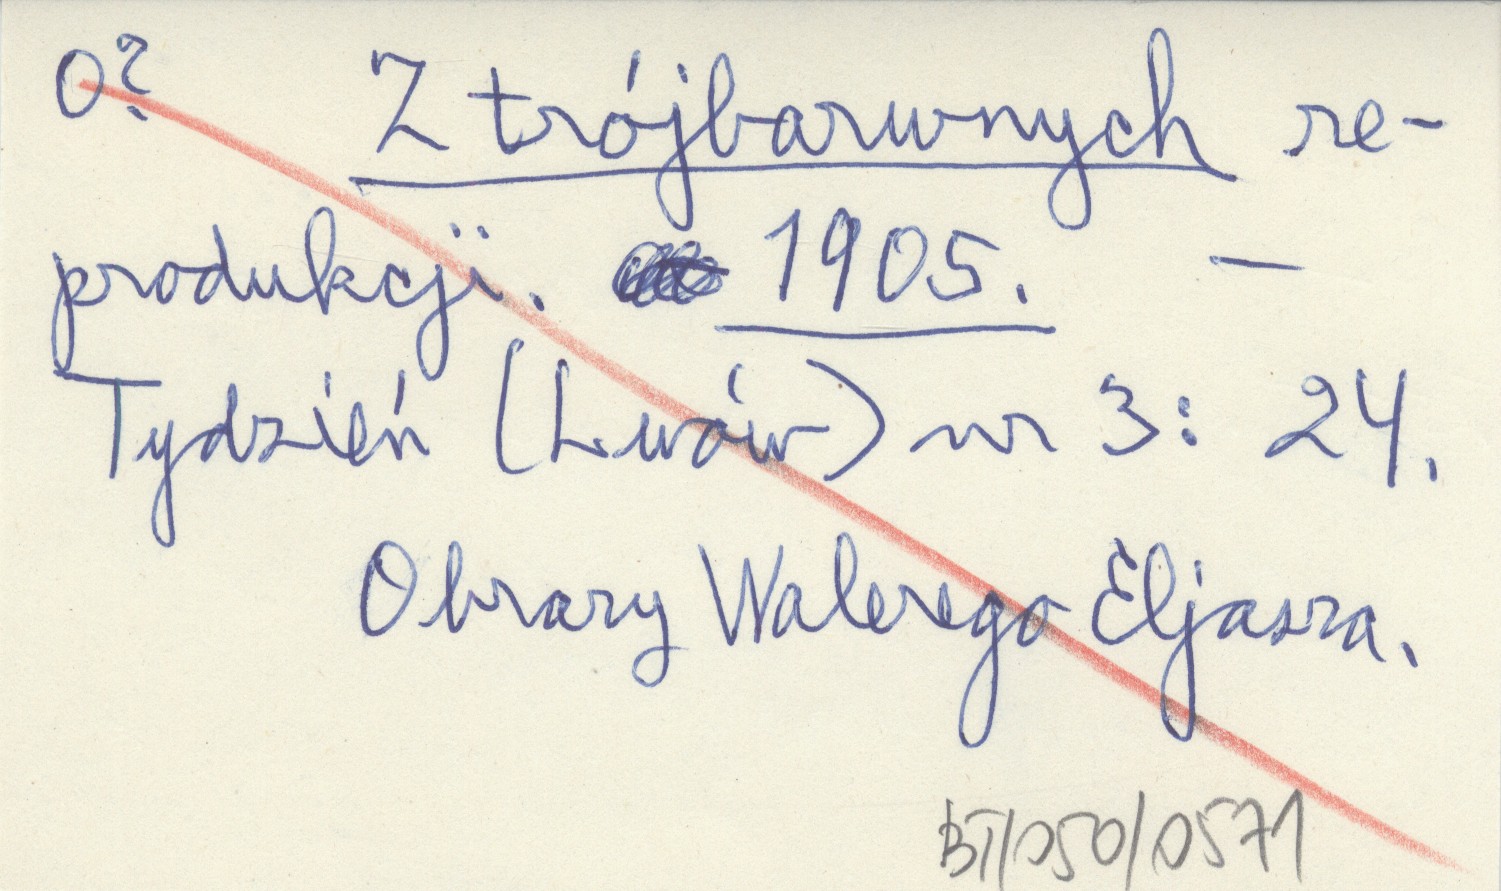 0? Z trójbarwnych re-
produkcji. 1905. —
Tydzień (Lwów) nr 3: 24.
Obrazy Walerego Eljasza.
BT/050/0571